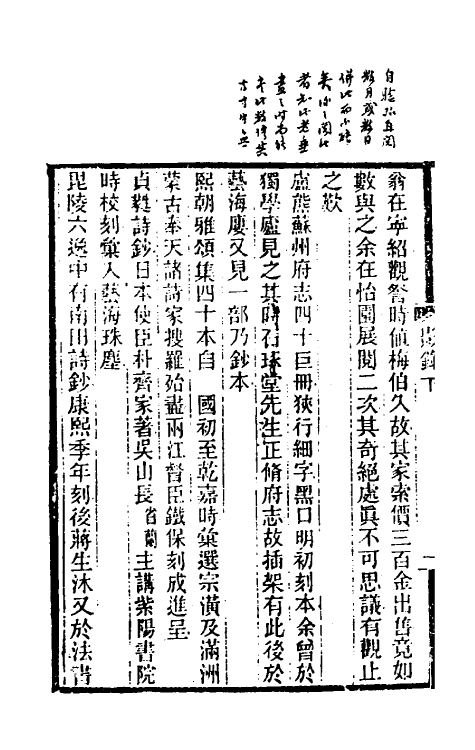 翁在寧紹觀詧時値梅伯久故其家索價三百金出售竟如
數與之余在怡園展閱二次其奇絕處眞不可思議有觀止
之歎
盧熊蘇州府志四十巨冊狹行細字黑口明初刻本余曾於
獨學廬見之其時石琢堂先生正脩府志故插架有此後於
藝海廔又見一部乃鈔本
熙朝雅頌集四十本自 國初至乾嘉時彙選宗潢及滿洲
蒙古奉天諸詩家搜羅殆盡兩江督臣鐵保刻成進呈
貞蕤詩鈔日本使臣朴齊家著吳山長省蘭主講紫陽書院
時校刻彙入藝海珠塵
毘陵六逸中有南田詩鈔康熙季年刻後蔣生沐又於法書